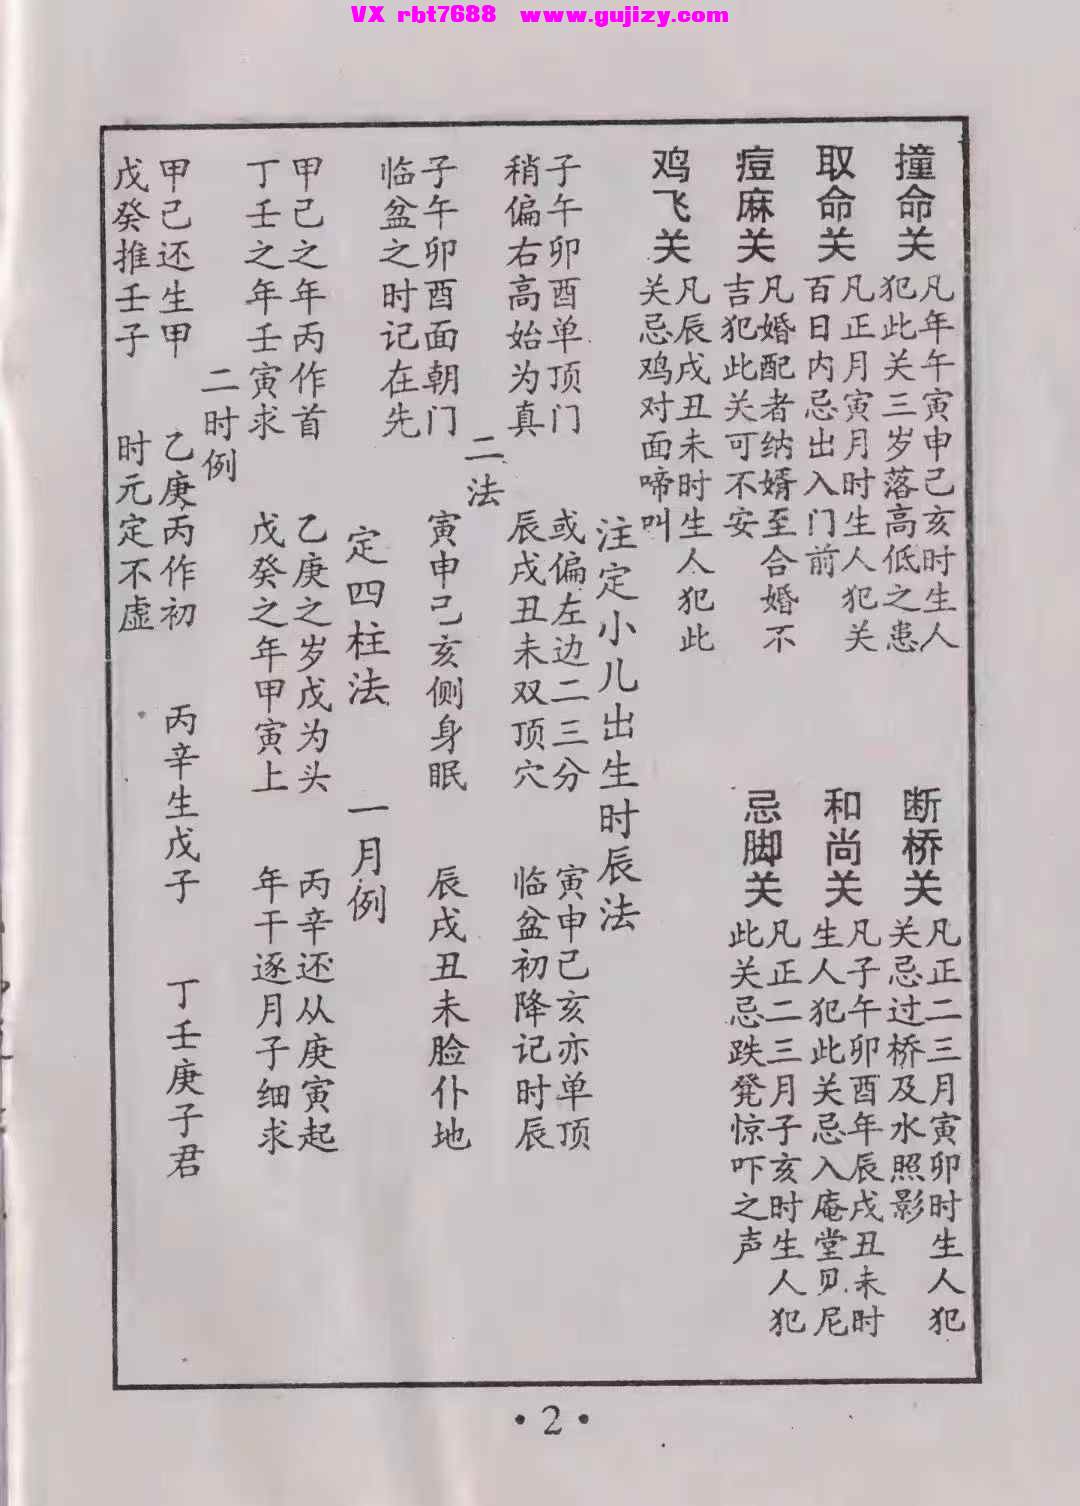 VX rbt7688 www.gujizy.com
撞命关
凡年午寅申己亥时生人
犯此关三岁落高低之患
取命关
凡正月寅月时生人犯关
百日内忌出入门前
痘麻关
凡婚配者纳婿至合婚不
吉犯此关可不安
鸡飞关
凡辰戌丑未时生人犯此
关忌鸡对面啼叫
断桥关
凡正二三月寅卯时生人犯
关忌过桥及水照影
和尚关
凡子午卯酉年辰戌丑未时
生人犯此关忌入庵堂见尼
忌脚关
凡正二三月子亥时生人犯
此关忌跌凳惊吓之声
注定小儿出生时辰法
子午卯酉单顶门 或偏左边二三分 寅申己亥亦单顶
稍偏右高始为真 辰戌丑未双顶穴 临盆初降记时辰
二法
子午卯酉面朝门 寅申己亥侧身眠 辰戌丑未脸仆地
临盆之时记在先
定四柱法 一月例
甲己之年丙作首 乙庚之岁戊为头 丙辛还从庚寅起
丁壬之年壬寅求 戊癸之年甲寅上 年干逐月子细求
二时例
甲己还生甲 乙庚丙作初 丙辛生戊子 丁壬庚子君
戊癸推壬子 时元定不虚
·2·